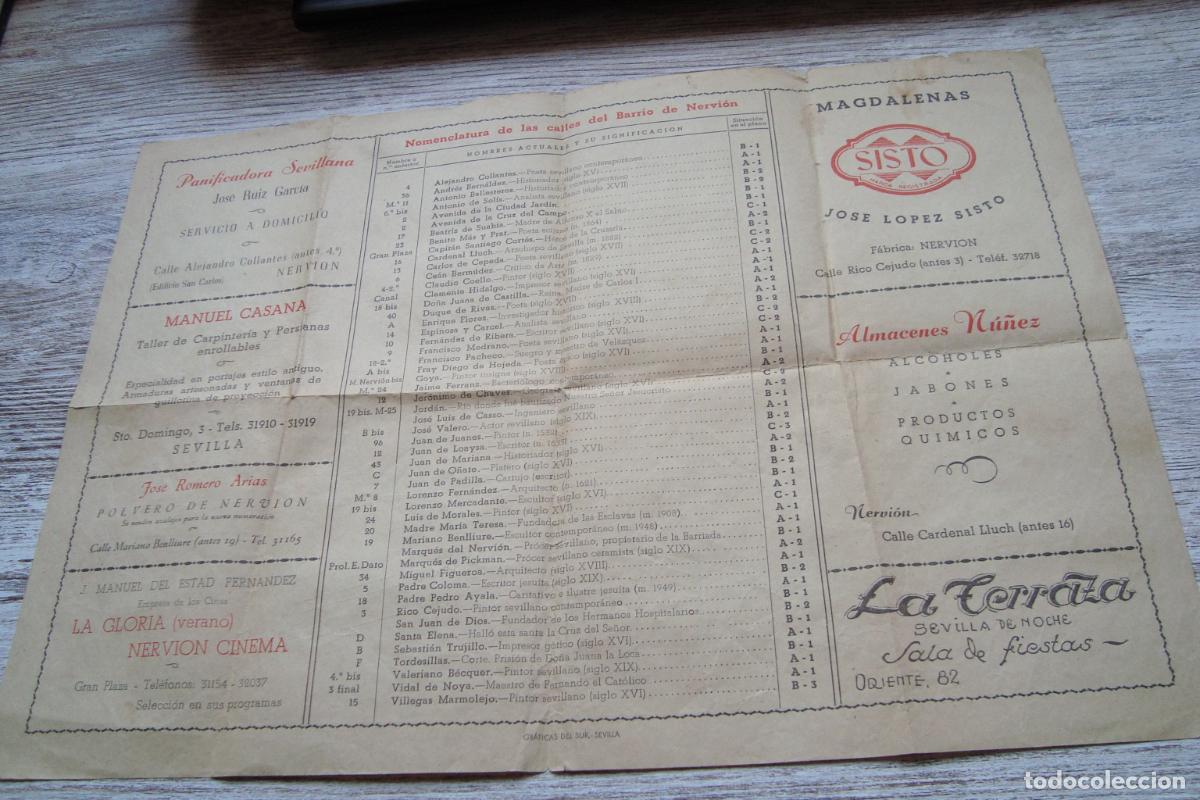 Panificadora Sevillana
José Ruiz García
SERVICIO A DOMICILIO
Calle Alejandro Collantes (antes 4.º)
NERVION
(Edificio San Carlos)
MANUEL CASANA
Taller de Carpintería y Persianas
enrollables
Especialidad en portajes estilo antiguo,
Armaduras artesonadas y ventanas de
guillotina de proyección
Sto. Domingo, 3 - Tels. 31910 - 31919
SEVILLA
José Romero Arias
POLVERO DE NERVION
Calle Mariano Benlliure (antes 19) - Tel. 31165
J. MANUEL DEL ESTAD FERNANDEZ
Empresa de los Cines
LA GLORIA (verano)
NERVION CINEMA
Gran Plaza - Teléfonos: 31154 - 32037
Selección en sus programas
Nomenclatura de las calles del Barrio de Nervión
NOMBRES ACTUALES Y SU SIGNIFICACION
Situación
en el plano
Alejandro Collantes.—Poeta sevillano contemporáneo
Andrés Bernáldez.—Historiador (siglo XV)
Antonio Ballesteros.—Historiador contemporáneo
Antonio de Solís.—Analista sevillano (siglo XVII)
Avenida de la Ciudad Jardín
Avenida de la Cruz del Campo
Beatriz de Suabia.—Madre de Alfonso X el Sabio
Benito Más y Prat.—Poeta
Capitán Santiago Cortés.—Héroe de la Cruzada
Cardenal Lluch.—Arzobispo de Sevilla (m. 1882)
Carlos de Cepeda.—Poeta sevillano
Ceán Bermúdez.—Crítico de Arte (m. 1829)
Claudio Coello.—Pintor (siglo XVII)
Clemente Hidalgo.—Impresor sevillano (siglo XVI)
Doña Juana de Castilla.—Reina, Madre de Carlos I
Duque de Rivas.—Poeta (siglo XIX)
Enrique Flores.—Investigador histórico (siglo XVIII)
Espinosa y Carcel.—Analista sevillano
Fernández de Ribera.—Escritor sevillano (siglo XVII)
Francisco Medrano.—Poeta sevillano
Francisco Pacheco.—Suegro y maestro de Velázquez
Fray Diego de Hojeda.—Poeta épico (siglo XVI)
Goya.—Pintor insigne
Jaime Ferrans.—Bacteriólogo contemporáneo
Jerónimo de Chaves.—
Jordán.—Río donde fué bautizado Nuestro Señor Jesucristo
José Luis de Casso.—Ingeniero sevillano
José Valero.—Actor sevillano (siglo XIX)
Juan de Juanes.—Pintor
Juan de Loaysa.—Escritor (n. 1633)
Juan de Mariana.—Historiador (siglo XVI)
Juan de Oñate.—Platero (siglo XV)
Juan de Padilla.—Cartujo (escritor)
Lorenzo Fernández.—Arquitecto (m. 1621)
Lorenzo Mercadante.—Escultor
Luis de Morales.—Pintor (siglo XVI)
Madre María Teresa.—Fundadora de las Esclavas (m. 1908)
Mariano Benlliure.—Escultor contemporáneo (m. 1948)
Marqués del Nervión.—Prócer sevillano, propietario de la Barriada
Marqués de Pickman.—Prócer sevillano ceramista (siglo XIX)
Prol. E. Dato Miguel Figueroa.—Arquitecto (siglo XVIII)
34 Padre Coloma.—Escritor jesuíta (siglo XIX)
5 Padre Pedro Ayala.—Caritativo e ilustre jesuíta (m. 1949)
18 Rico Cejudo.—Pintor sevillano contemporáneo
3 San Juan de Dios.—Fundador de los Hermanos Hospitalarios
Santa Elena.—Halló esta santa la Cruz del Señor
D Sebastián Trujillo.—Impresor gótico (siglo XVI)
B Tordesillas.—Corte. Prisión de Doña Juana la Loca
F Valeriano Bécquer.—Pintor sevillano (siglo XIX)
4.º bis
3 final Vidal de Noya.—Maestro de Fernando el Católico
15 Villegas Marmolejo.—Pintor sevillano (siglo XVI) B - 3
GRÁFICAS DEL SUR.-SEVILLA
MAGDALENAS
SISTO
MARCA REGISTRADA
JOSE LOPEZ SISTO
Fábrica: NERVION
Calle Rico Cejudo (antes 3) - Teléf. 32718
Almacenes Núñez
ALCOHOLES
JABONES
PRODUCTOS
QUIMICOS
Nervión
Calle Cardenal Lluch (antes 16)
La Terraza
SEVILLA DE NOCHE
Sala de fiestas
ORIENTE, 82
todocoleccion